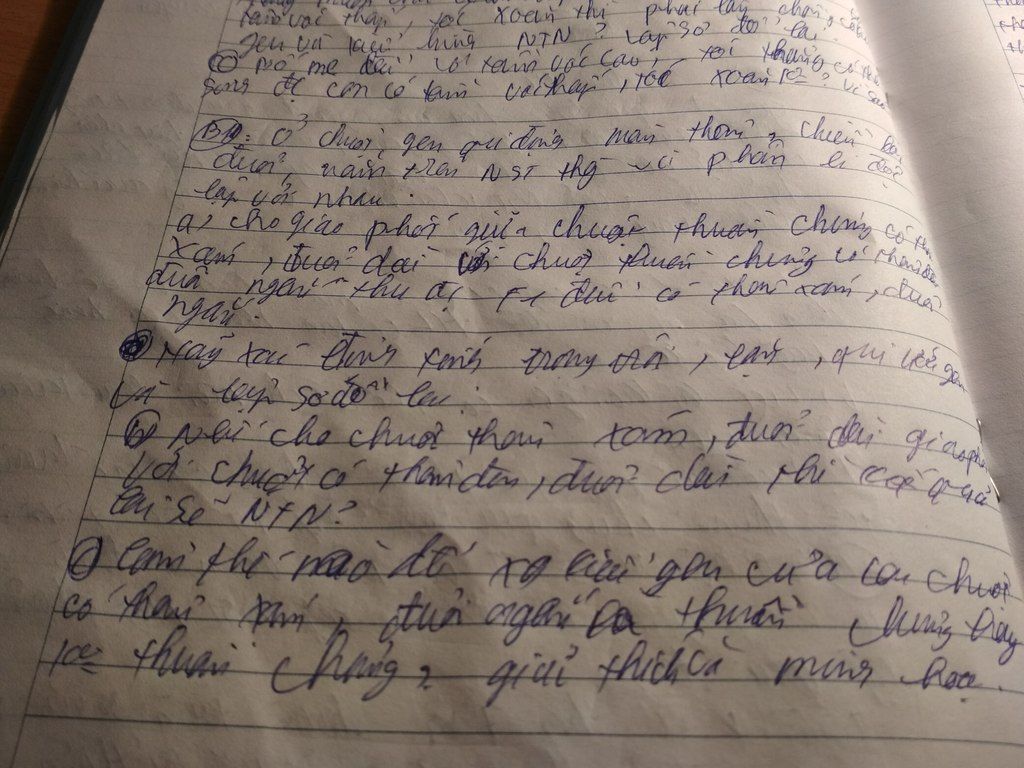 tầm vóc thấp, tóc xoăn thì phải lấy chồng có kiểu
gen và kiểu hình NTN? Lập sơ đồ lai.
c) Bố mẹ đều có tầm vóc cao, tóc thẳng có thể
sinh đc con có tầm vóc thấp, tóc xoăn ko? Vì sao
ở chuột, gen qui định màu thân, chiều dài
đuôi nằm trên NST thg và phân li độc
lập với nhau.
a, cho giao phối giữa chuột thuần chủng có thân
xám, đuôi dài với chuột thuần chủng có thân đen
đuôi ngắn thu đc F1 đều có thân xám, đuôi
ngắn.
Hãy xác định tính trạng trội, lặn, qui ước gen
và lập sơ đồ lai.
b) Nếu cho chuột thân xám, đuôi dài giao phối
với chuột có thân đen, đuôi dài thì kết quả
lai sẽ NTN?
c) Làm thế nào để xđ kiểu gen của con chuột
có thân xám, đuôi ngắn là thuần chủng hay
ko thuần chủng? giải thích và minh họa.